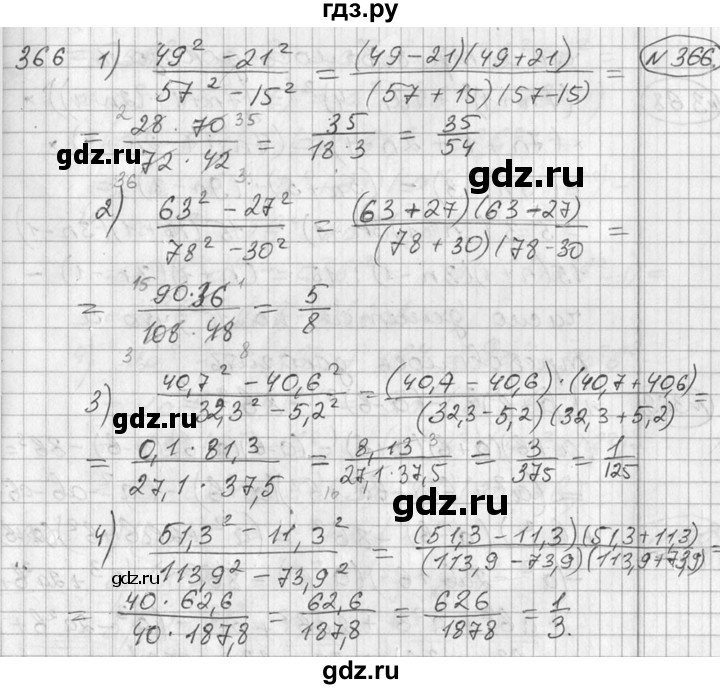 гдз.ру
366 1) (49² - 21²)/(57² - 15²) = ((49-21)(49+21))/((57+15)(57-15)) = №366
= (28 · 70)/(72 · 42) = 35/(18·3) = 35/54
gdz.ru
gdz.ru
2) (63² - 27²)/(78² - 30²) = ((63+27)(63-27))/((78+30)(78-30 =
= (90·36)/(108·48) = 5/8
3) (40,7² - 40,6²)/(32,3² - 5,2²) = ((40,7-40,6)·(40,7+40,6))/((32,3-5,2)(32,3+5,2)) =
= (0,1 · 81,3)/(27,1 · 37,5) = (8,13)/(27,1·37,5) = 3/375 = 1/125
gdz.ru
4) (51,3² - 11,3²)/(113,9² - 73,9²) = ((51,3-11,3)(51,3+11,3))/((113,9-73,9)(113,9+73,9)) =
gdz.ru
= (40 · 62,6)/(40 · 187,8) = 62,6/187,8 = 626/1878 = 1/3.
gdz.ru
gdz.ru
gdz.ru